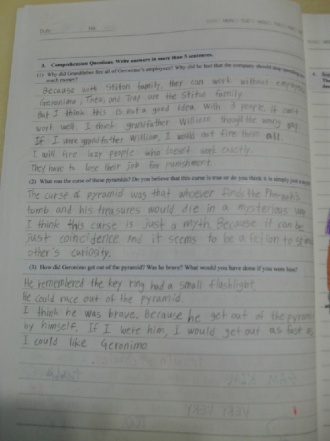 Date
No.
3. Comprehension Questions. Write answers in more than 3 sentences.
(1) Why did Grandfather fire all of Geronimo's employees? Why did he feel that the company should stop spending so
much money?
Because with Stilton family, they can work without employees.
Geronimo, Thea, and Trap are the Stilton family.
But I think this is not a good idea. With 3 people, it can't
work well. I think grandfather William thought the wrong way.
If I were grandfather William, I would not fire them all.
I will fire lazy people who doesn't work exactly.
They have to lose their job for punishment.
(2) What was the curse of these pyramids? Do you believe that this curse is true or do you think it is simply just a
The curse of pyramid was that whoever finds the Pharaoh's
tomb and his treasures would die in a mysterious way.
I think this curse is just a myth. Because it can be
just coincidence and it seems to be a fiction to
other's curiosity.
(3) How did Geronimo get out of the pyramid? Was he brave? What would you have done if you were him?
He remembered the key ring had a small flashlight.
He could race out of the pyramid.
I think he was brave. Because he get out of the pyramid
by himself. If I were him, I would get out as fast as
I could like Geronimo.